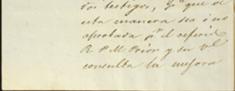 dos testigos, pa. que de
esta manera sea ó no
aprobada pr. el referido
R. P. M. Prior y su vl
consulta la mejora